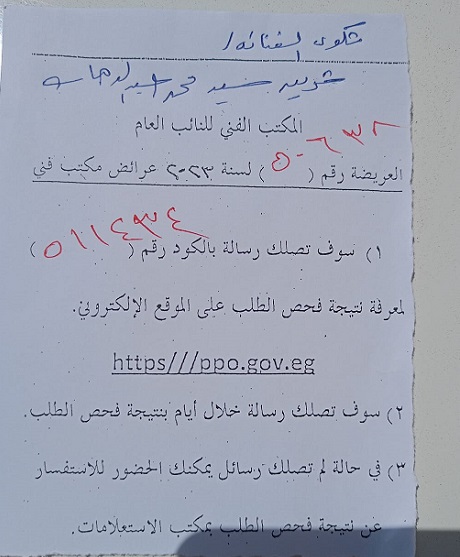 شكوى الفنانه/
شيرين سيد محمد
المكتب الفني للنائب العام
العريضة رقم (٥٠٦٣٢) لسنة ٢٠٢٣ عرائض مكتب فني
١) سوف تصلك رسالة بالكود رقم (٥١١٤٣٤)
لمعرفة نتيجة فحص الطلب على الموقع الإلكتروني.
https///ppo.gov.eg
٢) سوف تصلك رسالة خلال أيام بنتيجة فحص الطلب.
٣) في حالة لم تصلك رسائل يمكنك الحضور للاستفسار
عن نتيجة فحص الطلب بمكتب الاستعلامات.